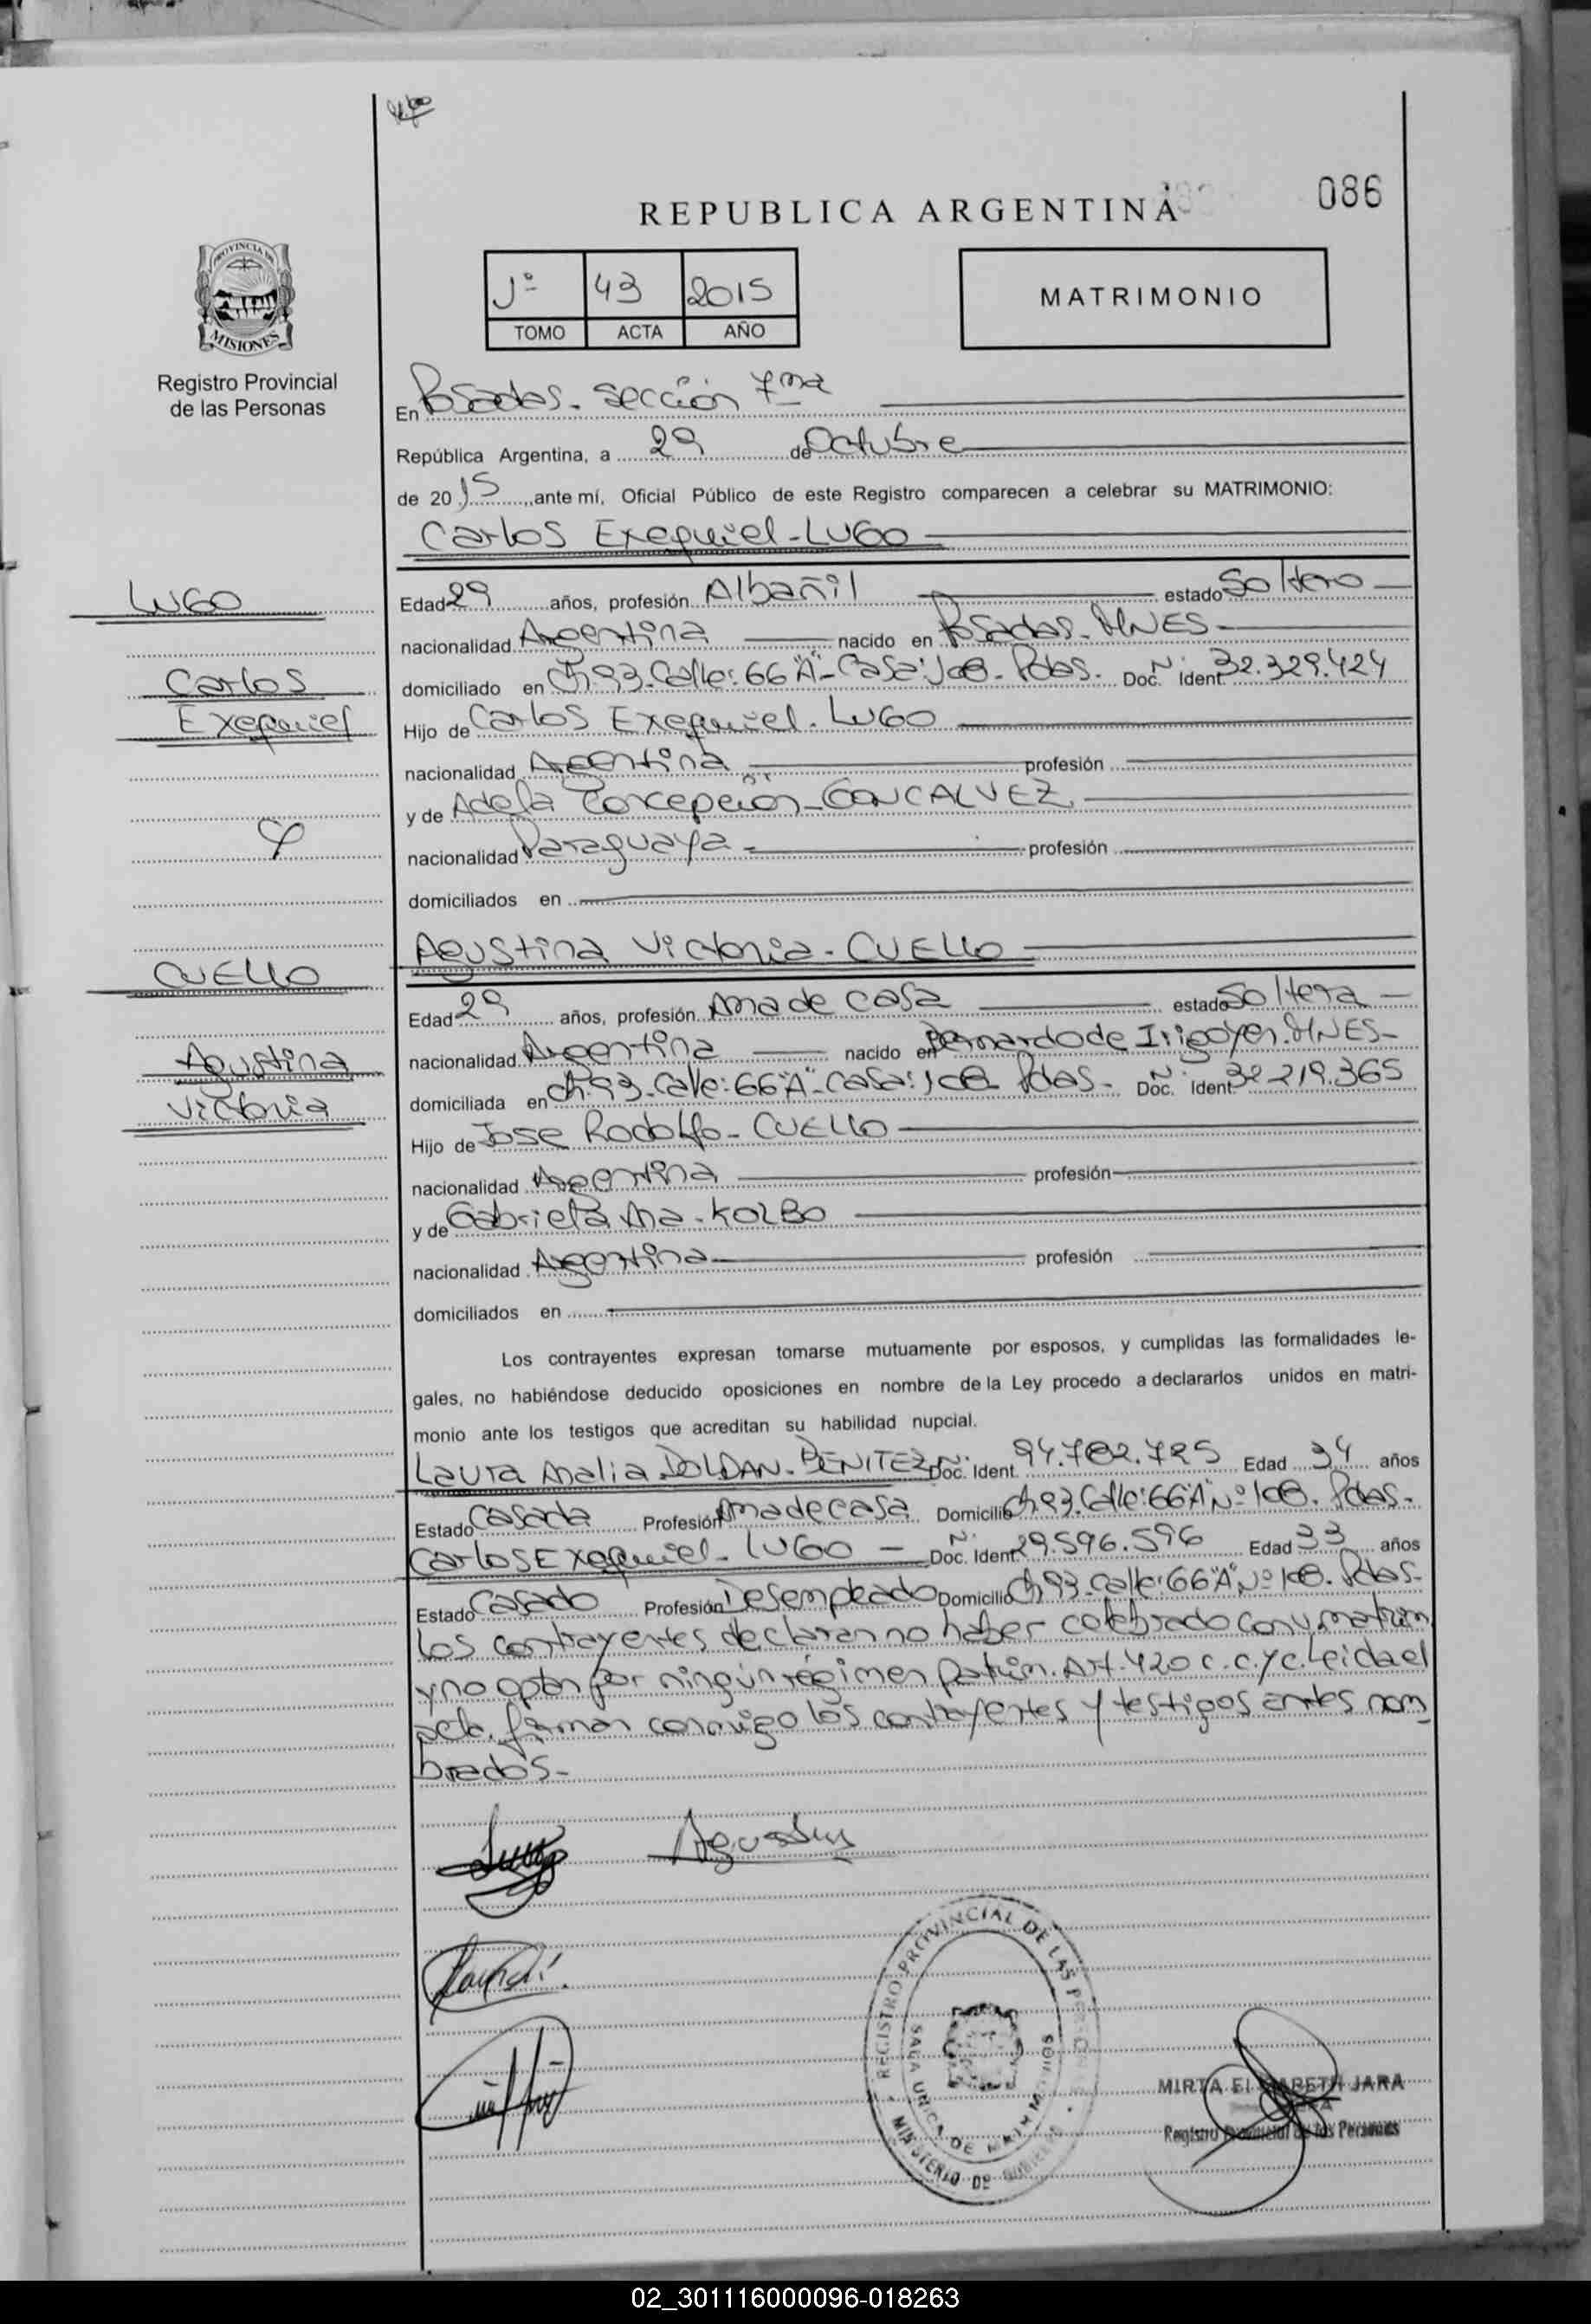 086
REPUBLICA ARGENTINA
PROVINCIA DE
MISIONES
Registro Provincial
de las Personas
Jº 43 2015
TOMO ACTA AÑO
MATRIMONIO
En Posadas - Sección 7ma
República Argentina, a 29 de Octubre
de 2015, ante mí, Oficial Público de este Registro comparecen a celebrar su MATRIMONIO:
Carlos Exequiel - LUGO
LUGO
Carlos
Exequiel
y
CUELLO
Agustina
Victoria
Edad 29 años, profesión Albañil estado Soltero
nacionalidad Argentina nacido en Posadas - MNES -
domiciliado en Ch. 93 - Calle: 66 "A" - Casa: 108 - Pdas. Doc. Nº Ident. 32.329.424
Hijo de Carlos Exequiel - LUGO
nacionalidad Argentina profesión
y de Adela Concepción - GONCALVEZ
nacionalidad Paraguaya - profesión
domiciliados en
Agustina Victoria - CUELLO
Edad 29 años, profesión Ama de casa estado Soltera -
nacionalidad Argentina nacido en Bernardo de Irigoyen. MNES -
domiciliada en Ch. 93 - Calle: 66 "A" - Casa: 108 Pdas. Doc. Nº Ident. 32.219.365
Hijo de Jose Rodolfo - CUELLO
nacionalidad Argentina profesión
y de Gabriela Ma - KOLBO
nacionalidad Argentina profesión
domiciliados en
Los contrayentes expresan tomarse mutuamente por esposos, y cumplidas las formalidades le-
gales, no habiéndose deducido oposiciones en nombre de la Ley procedo a declararlos unidos en matri-
monio ante los testigos que acreditan su habilidad nupcial.
Laura Analia DOLDAN - BENITEZ Doc. Nº Ident. 94.782.725 Edad 34 años
Estado Casada Profesión Ama de casa Domicilio Ch. 93. Calle: 66 "A" Nº 108. Pdas.
Carlos Exequiel - LUGO - Doc. Nº Ident. 29.596.596 Edad 33 años
Estado Casado Profesión Desempleado Domicilio Ch. 93 - Calle: 66 "A" Nº 108. Pdas.
Los contrayentes declaran no haber celebrado conv. matrim
y no optan por ningún régimen patrim. Art. 420 c. c. y c. Leida el
acta, firman conmigo los contrayentes y testigos antes nom
brados -
Agustina
REGISTRO PROVINCIAL DE LAS PERSONAS
SALA UNICA DE MATRIMONIOS
MINISTERIO DE GOBIERNO
MIRTA ELIZABETH JARA
Registro Provincial de las Personas
02_301116000096-018263